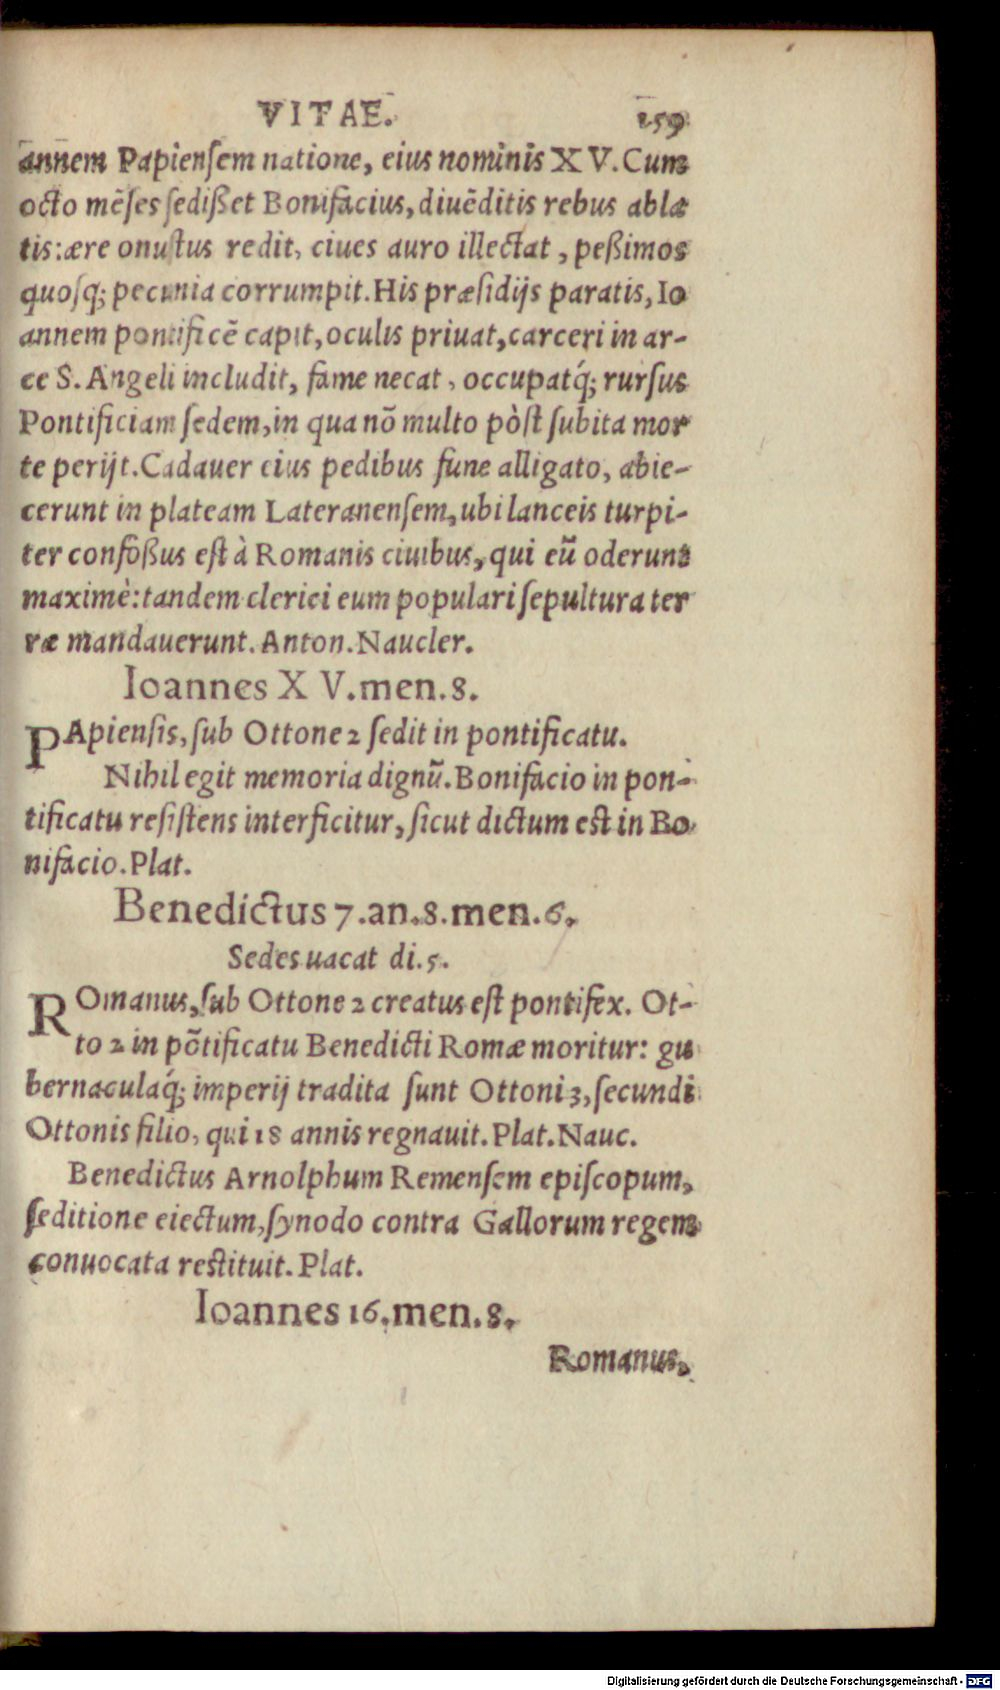 VITAE. 259
annem Papiensem natione, eius nominis XV. Cum
octo mẽses sedißet Bonifacius, diuẽditis rebus ablæ
tis: ære onustus redit, ciues auro illectat, peßimos
quosq́; pecunia corrumpit. His præsidijs paratis, Io
annem pontificẽ capit, oculis priuat, carceri in ar-
ce S. Angeli includit, fame necat, occupatq́; rursus
Pontificiam sedem, in qua nõ multo pòst subita mor
te perijt. Cadauer eius pedibus fune alligato, abie-
cerunt in plateam Lateranensem, ubi lanceis turpi-
ter confoßus est à Romanis ciuibus, qui eũ oderunt
maximè: tandem clerici eum populari sepultura ter
ræ mandauerunt. Anton. Naucler.
Ioannes XV. men. 8.
PApiensis, sub Ottone 2 sedit in pontificatu.
Nihil egit memoria dignũ. Bonifacio in pon-
tificatu resistens interficitur, sicut dictum est in Bo
nifacio. Plat.
Benedictus 7. an. 8. men. 6.
Sedes uacat di. 5.
ROmanus, sub Ottone 2 creatus est pontifex. Ot-
to 2 in põtificatu Benedicti Romæ moritur: gu
bernaculaq́; imperij tradita sunt Ottoni 3, secundi
Ottonis filio, qui 18 annis regnauit. Plat. Nauc.
Benedictus Arnolphum Remensem episcopum,
seditione eiectum, synodo contra Gallorum regem
conuocata restituit. Plat.
Ioannes 16. men. 8.
Romanus,
Digitalisierung gefördert durch die Deutsche Forschungsgemeinschaft - DFG